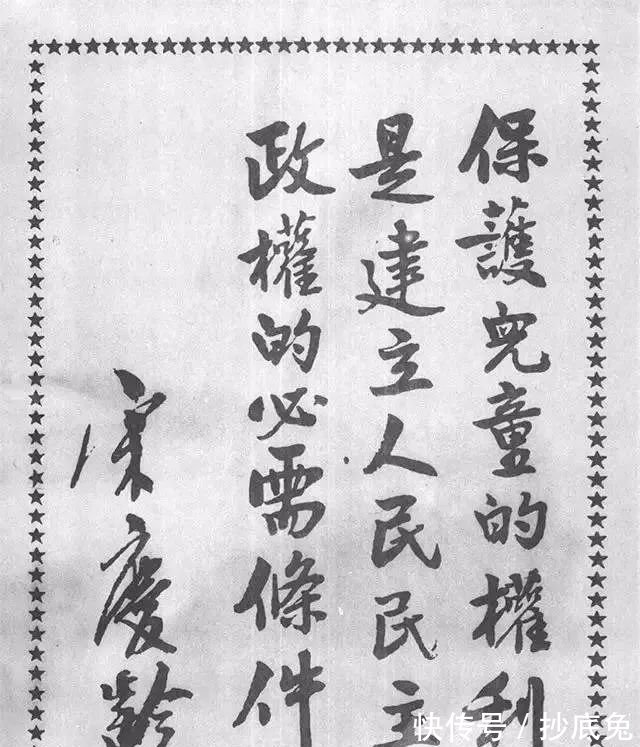 保護兒童的權利
是建立人民民主
政權的必需條件
宋慶齡
快传号/抄底兔